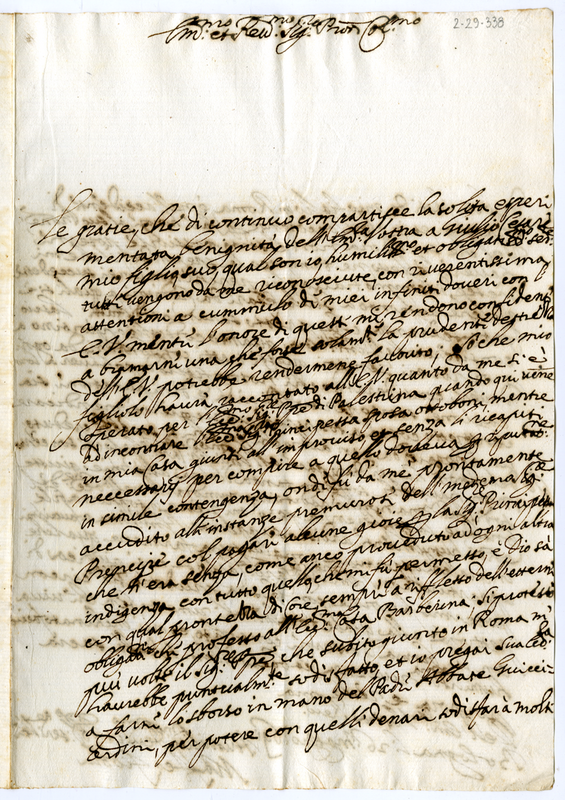 Em.mo et Rev.mo Sig.r Pron Col.mo
2-29-338
Le gratie, che di continuo compartisce la solita esperi
mentata benignità dell'Em.za Vostra a Giulio Cesare
mio figlio suo, qual son io humiliss.mo et obligatiss.mo ser.
tutt. vengono da me riconosciute, con riverentissima
attentioni a cummulo di miei infiniti doveri con
E.V. mentre l'onore di questi mi rendono confidenti
a bramarni una che forse solam.te la prudenti destre
dell'E.V. potrebbe rendermene favorito. Si che mio
figliolo haurà raccontato all'E.V. quanto da me si è
operato per l' Pre di Palestrina quando qui viene
ad incontrare l' Sig. Principessa sposa ottoboni, mentre
in mia Casa giunti all'improviso et senza li ricapiti
necessarij per compire a quello doveva
in simile contengenza, onde fù da me prontamente
accudito all'instanze premurosi dell'medema
Prencipe col pagari alcune gioie la Sig. Principessa
che s'era seruita, come anco proueduto ad ogni altra
indigenza, con tutto quello che mi fù permesso, è Dio sà
con qual prontezza di Core, sempri à riflesso dell'eterni
oblig.ni che professo all' Casa Barberina. Si protestò
più volte il Sig. che subito giunto in Roma m'
haurebbe puntualm.te sodisfatto, et io pregai Sua
a farni lo sborso in mano del Padri Abbate Guicci-
ardini, per potere con quelli denari sodisfarà molti